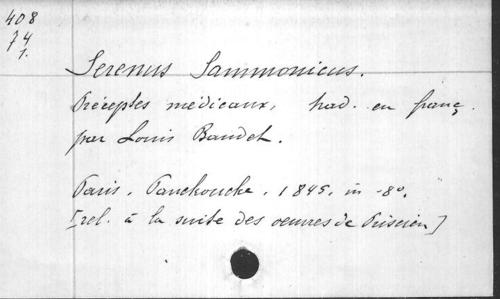 408
74
1.
Serenus Sammonicus.
Préceptes médicaux, trad. en franç.
par Louis Baudet.
Paris, Panckoucke, 1845, in -8o.
[rel. à la suite des oeuvres de Priscien]